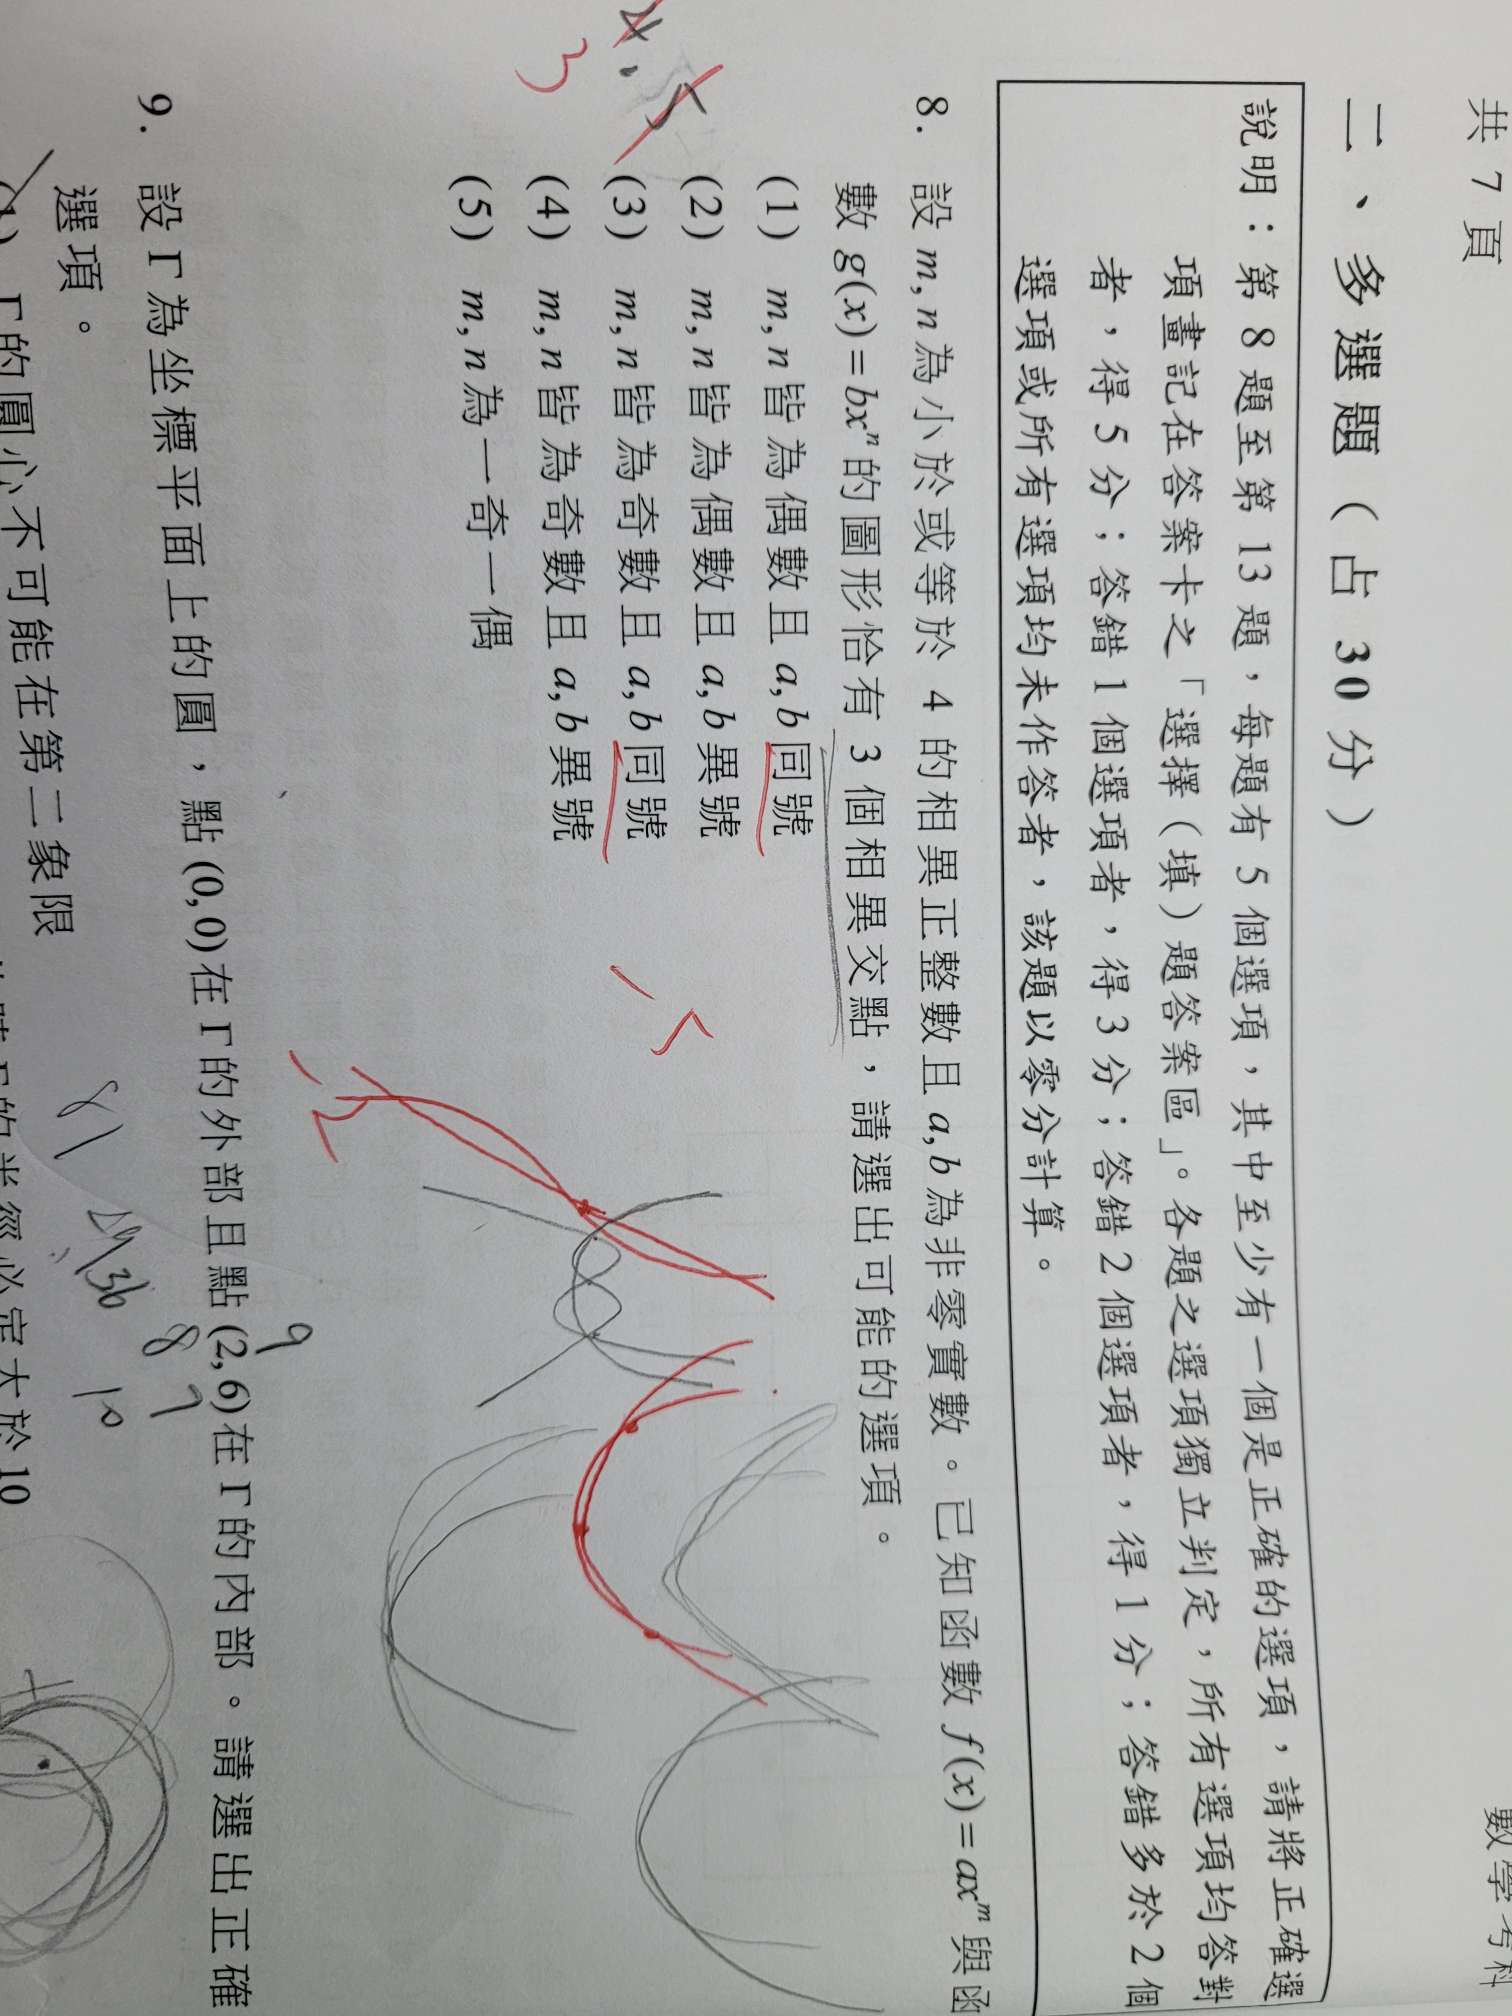 共 7 頁
數學考科
二、多選題（占 30 分）
說明：第 8 題至第 13 題，每題有 5 個選項，其中至少有一個是正確的選項，請將正確選
項畫記在答案卡之「選擇（填）題答案區」。各題之選項獨立判定，所有選項均答對
者，得 5 分；答錯 1 個選項者，得 3 分；答錯 2 個選項者，得 1 分；答錯多於 2 個
選項或所有選項均未作答者，該題以零分計算。
8. 設 m, n 為小於或等於 4 的相異正整數且 a, b 為非零實數。已知函數 f(x)=axᵐ 與函
數 g(x)=bxⁿ 的圖形恰有 3 個相異交點，請選出可能的選項。
(1) m, n 皆為偶數且 a, b 同號
(2) m, n 皆為偶數且 a, b 異號
(3) m, n 皆為奇數且 a, b 同號
(4) m, n 皆為奇數且 a, b 異號
(5) m, n 為一奇一偶
4. 5
3
9. 設 Γ 為坐標平面上的圓，點 (0,0) 在 Γ 的外部且點 (2,6) 在 Γ 的內部。請選出正確
選項。
(1) Γ 的圓心不可能在第二象限
81
36
8
9
10